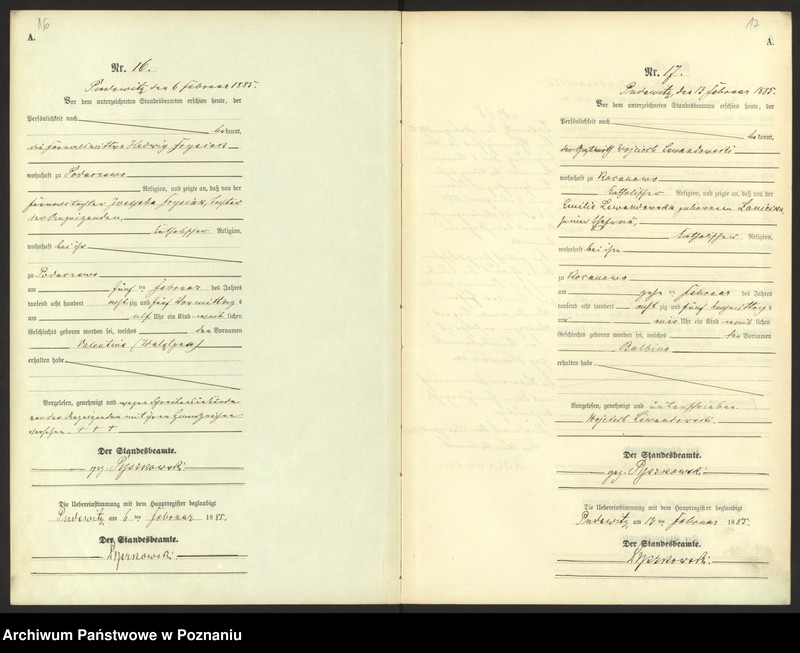 16
A.
Nr. 16.
Pudewitz, den 6 Februar 1885.
Vor dem unterzeichneten Standesbeamten erschien heute, der
Persönlichkeit nach
bekannt,
die Hedwig Frysiak
wohnhaft zu Podarzewo
Religion, und zeigte an, daß von der
Josepha Frysiak, Tochter
der Anzeigenden,
katholischer Religion,
wohnhaft bei ihr
zu Podarzewo
am fünf ten Februar des Jahres
tausend acht hundert acht zig und fünf Vormittags
um elf Uhr ein Kind weib lichen
Geschlechts geboren worden sei, welches den Vornamen
Valentina
erhalten habe
Vorgelesen, genehmigt und wegen Schreibensunkunde
von der Anzeigenden mit ihren Handzeichen
versehen. + + +
Der Standesbeamte.
gez.
Die Uebereinstimmung mit dem Hauptregister beglaubigt
Pudewitz am 6 ten Februar 1885.
Der Standesbeamte.
17
A.
Nr. 17.
Pudewitz, den 13 Februar 1885.
Vor dem unterzeichneten Standesbeamten erschien heute, der
Persönlichkeit nach
bekannt,
der Wojciech Lewandowski
wohnhaft zu Kocanowo
katholischer Religion, und zeigte an, daß von der
Emilie Lewandowska geborenen
seiner Ehefrau,
katholischer Religion,
wohnhaft bei ihm
zu Kocanowo
am zehn ten Februar des Jahres
tausend acht hundert acht zig und fünf Nachmittags
um vier Uhr ein Kind weib lichen
Geschlechts geboren worden sei, welches den Vornamen
Balbina
erhalten habe
Vorgelesen, genehmigt und unterschrieben
Wojciech Lewandowski.
Der Standesbeamte.
gez.
Die Uebereinstimmung mit dem Hauptregister beglaubigt
Pudewitz am 13 ten Februar 1885.
Der Standesbeamte.
Archiwum Państwowe w Poznaniu